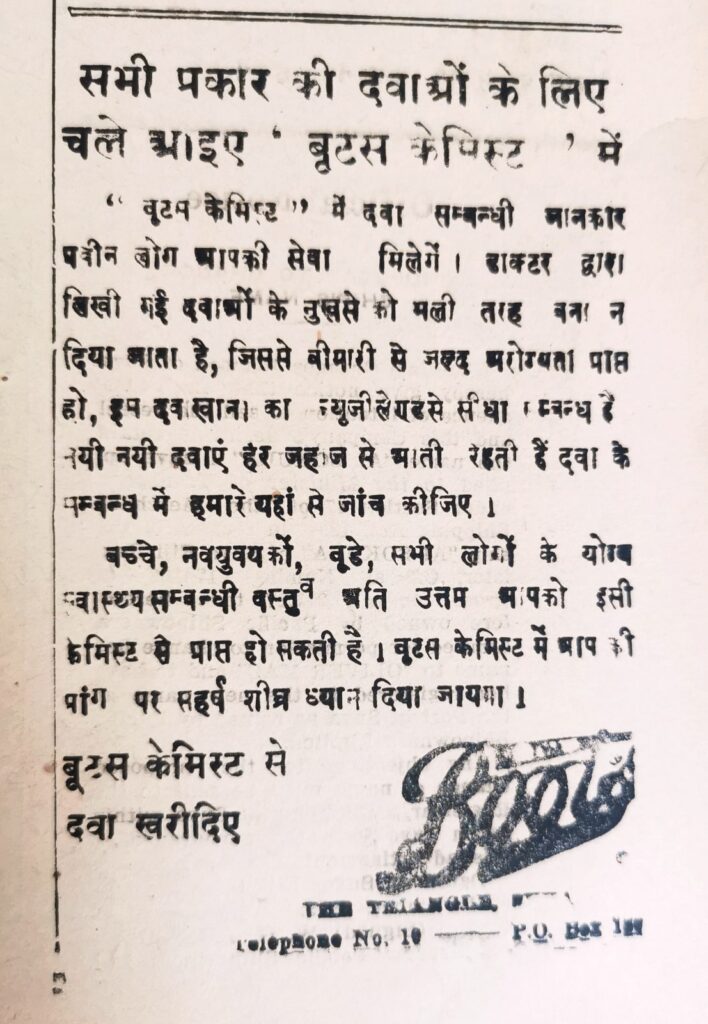 सभी प्रकार की दवाओं के लिए
चले आइए ‘ बूटस केमिस्ट ’ में
“ बूटस केमिस्ट ” में दवा सम्बन्धी जानकार
प्रवीन लोग आपकी सेवा मिलेगें । डाक्टर द्वारा
लिखी गई दवाओं के नुखसे को भली तरह बना न
दिया जाता है, जिससे बीमारी से जल्द अरोग्यता प्राप्त
हो, इस दवाखाना का न्यूजीलेण्डसे सीधा सम्बन्ध है
नयी नयी दवाएं हर जहाज से आती रहती हैं दवा के
सम्बन्ध में हमारे यहां से जांच कीजिए ।
बच्चे, नवयुवयकों, बूढे, सभी लोगों के योग्य
स्वास्थ्य सम्बन्धी वस्तुव अति उत्तम आपको इसी
केमिस्ट से प्राप्त हो सकती है । बूटस केमिस्ट में आप की
मांग पर सहर्ष शीघ्र ध्यान दिया जायगा ।
बूटस केमिस्ट से
दवा खरीदिए
Boots
THE TRIANGLE,
Telephone No. 10 —— P.O. Box